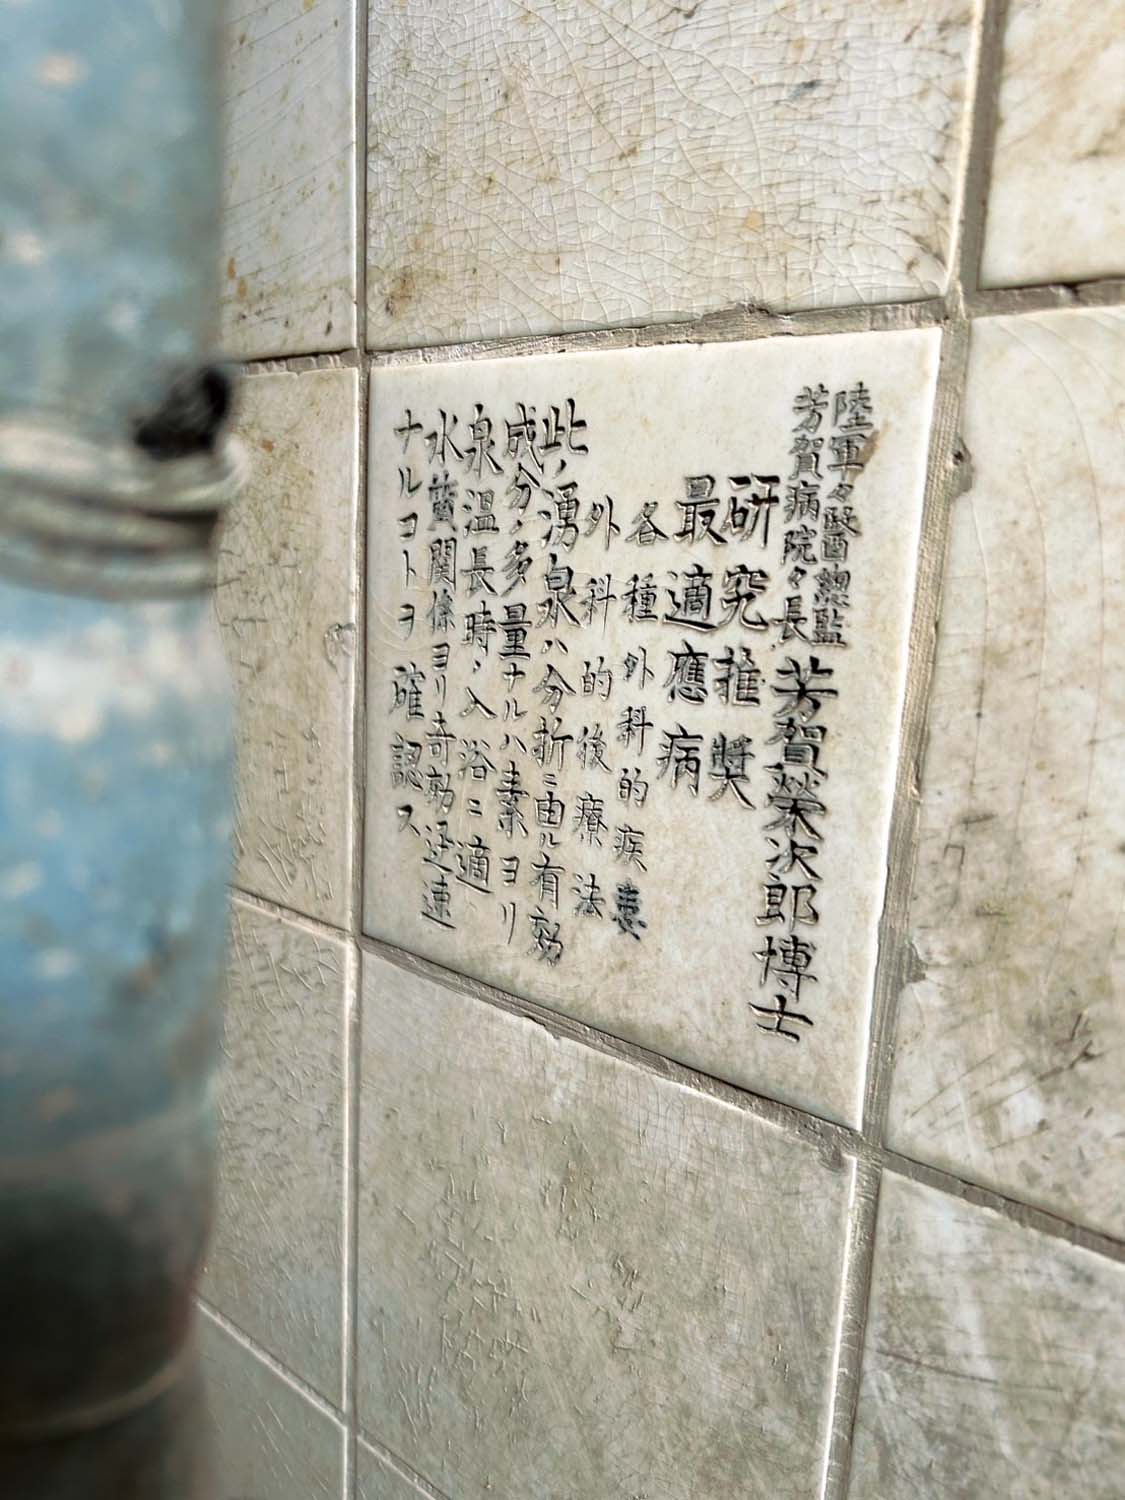 陸軍々醫總監
芳賀病院々長
芳賀榮次郎博士
研究推奬
最適應病
各種外科的疾患
外科的後療法
此ノ湧泉ハ分折ニ由ル有効
成分ノ多量ナルハ素ヨリ
泉温長時ノ入浴ニ適
水質関係ヨリ奇効迅速
ナルコトヲ確認ス